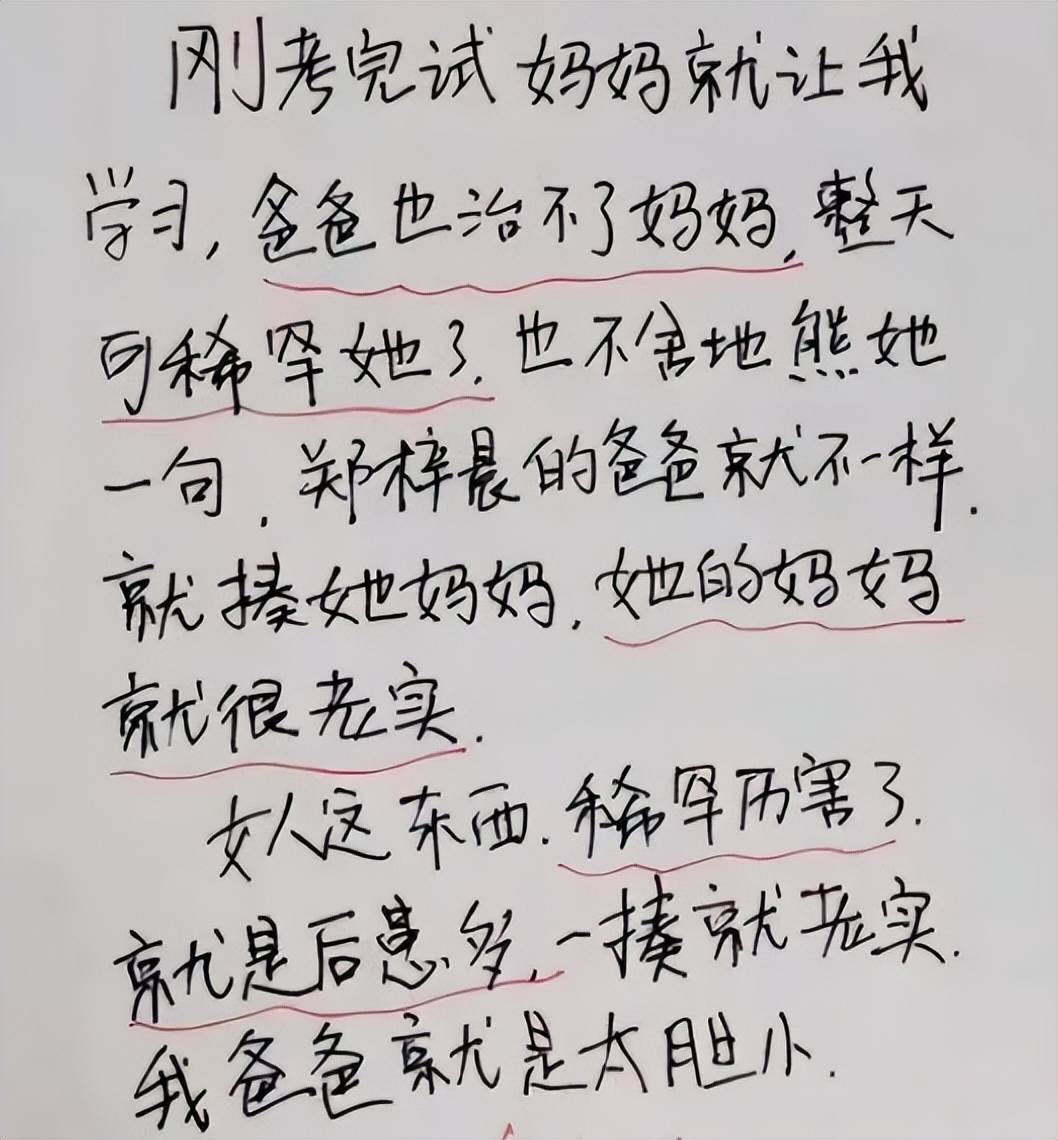 刚考完试妈妈就让我
学习,爸爸也治不了妈妈,整天
可稀罕她了.也不舍地熊她
一句,郑梓晨的爸爸就不一样.
就揍她妈妈,她的妈妈
就很老实.
女人这东西.稀罕厉害了.
就是后患多,一揍就老实.
我爸爸就是太胆小.